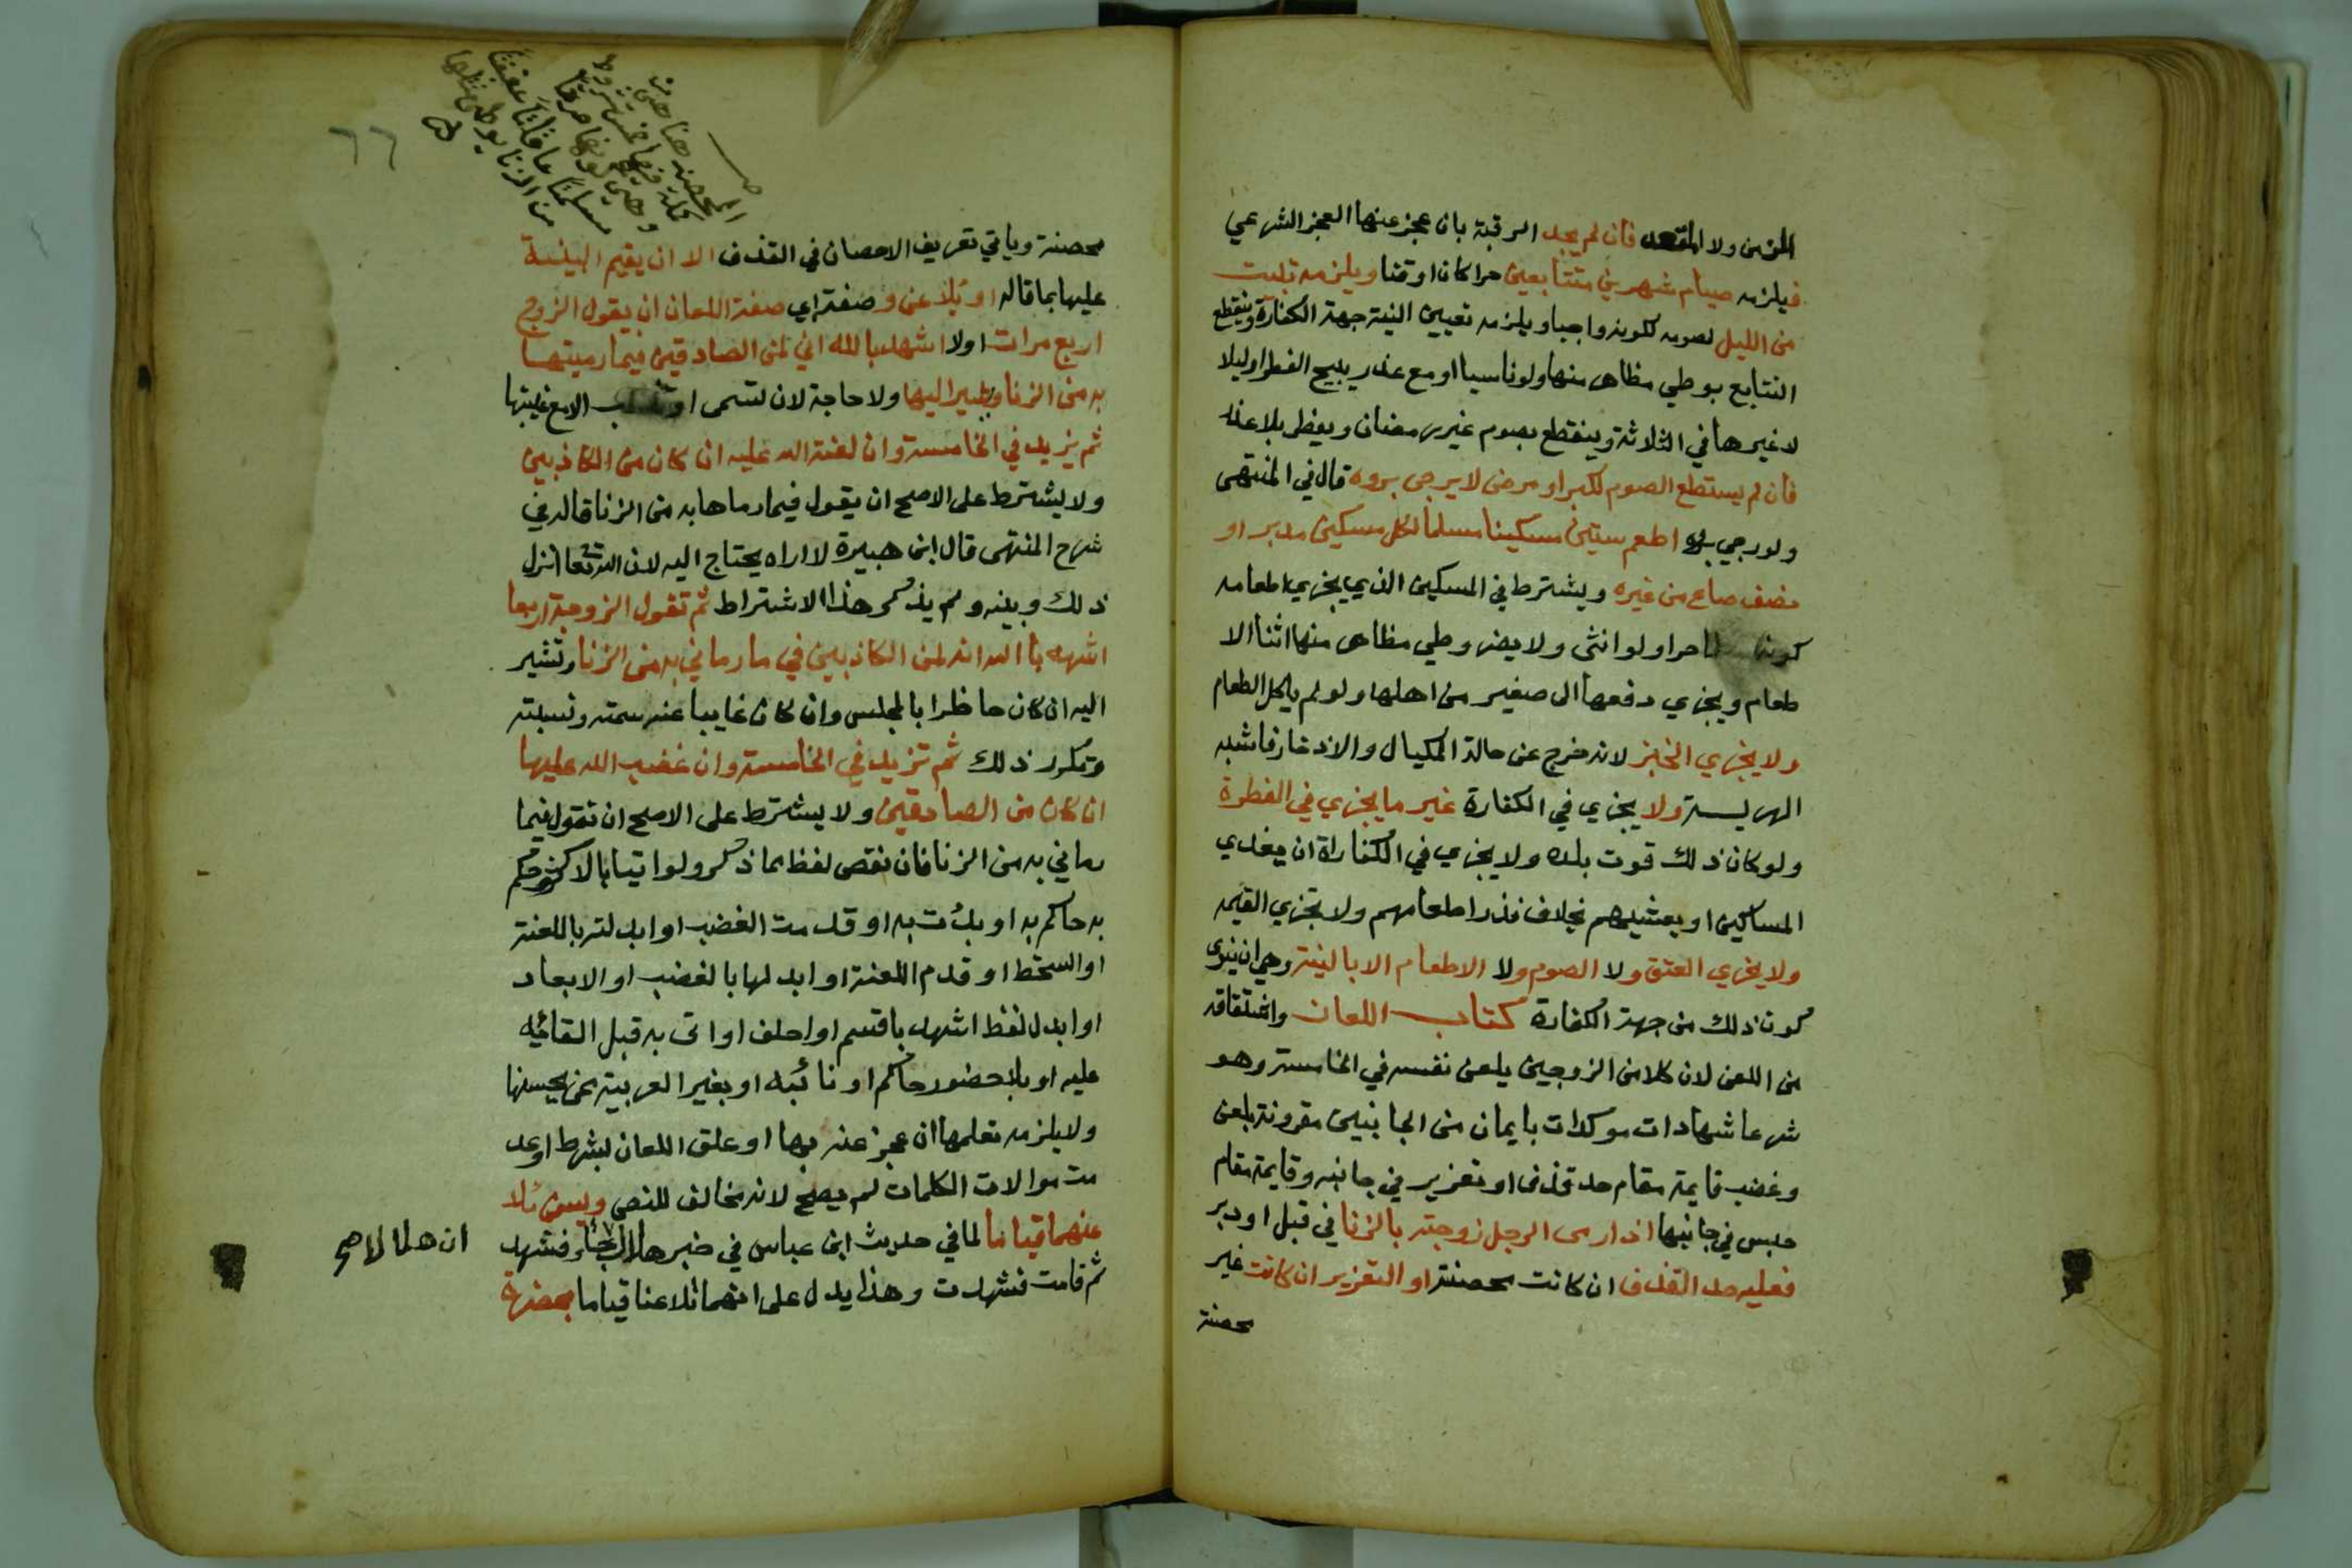 الزمن ولا المقعد فان لم يجد الرقبة بان عجز عنها العجز الشرعي
فيلزمه صيام شهرين متتابعين حرا كان او قنا ويلزمه تبيت
من الليل لصومه لكونه واجبا ويلزمه تعيين النية جهة الكفارة وينقطع
التتابع بوطي مظاهر منها ولو ناسيا او مع عذر يبيح الفطر او ليلا
لا غيرها في الثلاثة وينقطع بصوم غير رمضان ويفطر بلا عذر
فان لم يستطع الصوم لكبر او مرض لا يرجى بروه قال في المنتهى
ولو رجي بروه اطعم ستين مسكينا مسلما لكل مسكين مد بر او
نصف صاع من غيره ويشترط في المسكين الذي يجزي اطعامه
كونه حرا ولو انثى ولا يضر وطي مظاهر منها اثنا الا
طعام ويجزي دفعها الى صغير من اهلها ولو لم ياكل الطعام
ولا يجزي الخبز لانه خرج عن حالة المكيال والادخار فاشبه
الهريسة ولا يجزي في الكفارة غير ما يجزي في الفطرة
ولو كان ذلك قوت بلده ولا يجزي في الكفاراة ان يغدي
المساكين او يعشيهم بخلاف نذر اطعامهم ولا تجزي القيمه
ولا يجزي العتق ولا الصوم ولا الاطعام الا بالنية وهي ان ينوى
كون ذلك من جهة الكفارة كتاب اللعان واشتقاقه
من اللعن لان كلا من الزوجين يلعن نفسه في الخامسة وهو
شرعا شهادات موكدات بايمان من الجانبين مقرونة بلعن
وغضب قايمة مقام حد قذف او تعزير في جانبه وقايمة مقام
حبس في جانبها اذا رمى الرجل زوجته بالزنا في قبل او دبر
فعليه حد القذف ان كانت محصنة او التعزير ان كانت غير
محصنة
٦٦
المحصنة هنا
مسلمتا عاقلتا عفيفتا
من الزنا يوطى مثلها
محصنة وياتي تعريف الاحصان في القذف الا ان يقيم البينة
عليها بما قاله او يلاعن وصفته اي صفة اللعان ان يقول الزوج
اربع مرات اولا اشهد بالله اني لمن الصادقين فيما رميتها
به من الزنا ويشير اليها ولا حاجة لان تسمى او تنسب الا مع غيبتها
ثم يزيد في الخامسة وان لعنة الله عليه ان كان من الكاذبين
ولا يشترط على الاصح ان يقول فيما رماها به من الزنا قاله في
شرح المنتهى قال ابن هبيرة لا اراه يحتاج اليه لان الله تعا انزل
ذلك وبينه ولم يذكر هذا الاشتراط ثم تقول الزوجة اربعا
اشهد با الله انه لمن الكاذبين في ما رماني به من الزنا وتشير
اليه ان كان حاظرا بالمجلس وان كان غايبا عنه سمته ونسبته
وتكرر ذلك ثم تزيد في الخامسة وان غضب الله عليها
ان كان من الصادقين ولا يشترط على الاصح ان تقول فيما
رماني به من الزنا فان نقص لفظ مما ذكر ولو اتيا بالاكثر وحكم
به حاكم به او بدت به او قدمت الغضب او ابدلته باللعنة
او السخط او قدم اللعنة او ابدلها بالغضب او الابعاد
او ابدل لفظ اشهد باقسم او احلف او اتى به قبل القائه
عليه او بلا حضور حاكم او نائبه او بغير العربية ممن يحسنها
ولا يلزمه تعلمها ان عجز عنه بها او علق اللعان بشرط او عد
مت موالات الكلمات لم يصح لانه مخالف للنص وسن تلا
عنهما قياما لما في حديث ابن عباس في خبر هلال فجا فشهد
ان هلالا صح
ثم قامت فشهدت وهذا يدل على انهما تلاعنا قياما بحضرة